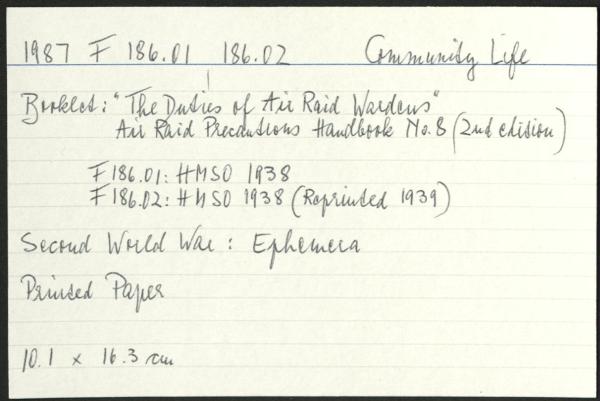 1987 F 186.01 186.02 Community Life
Booklet: "The Duties of Air Raid Wardens"
Air Raid Precautions Handbook No. 8 (2nd edition)
F186.01: HMSO 1938
F186.02: HMSO 1938 (Reprinted 1939)
Second World War: Ephemera
Printed Paper
10.1 x 16.3 cm